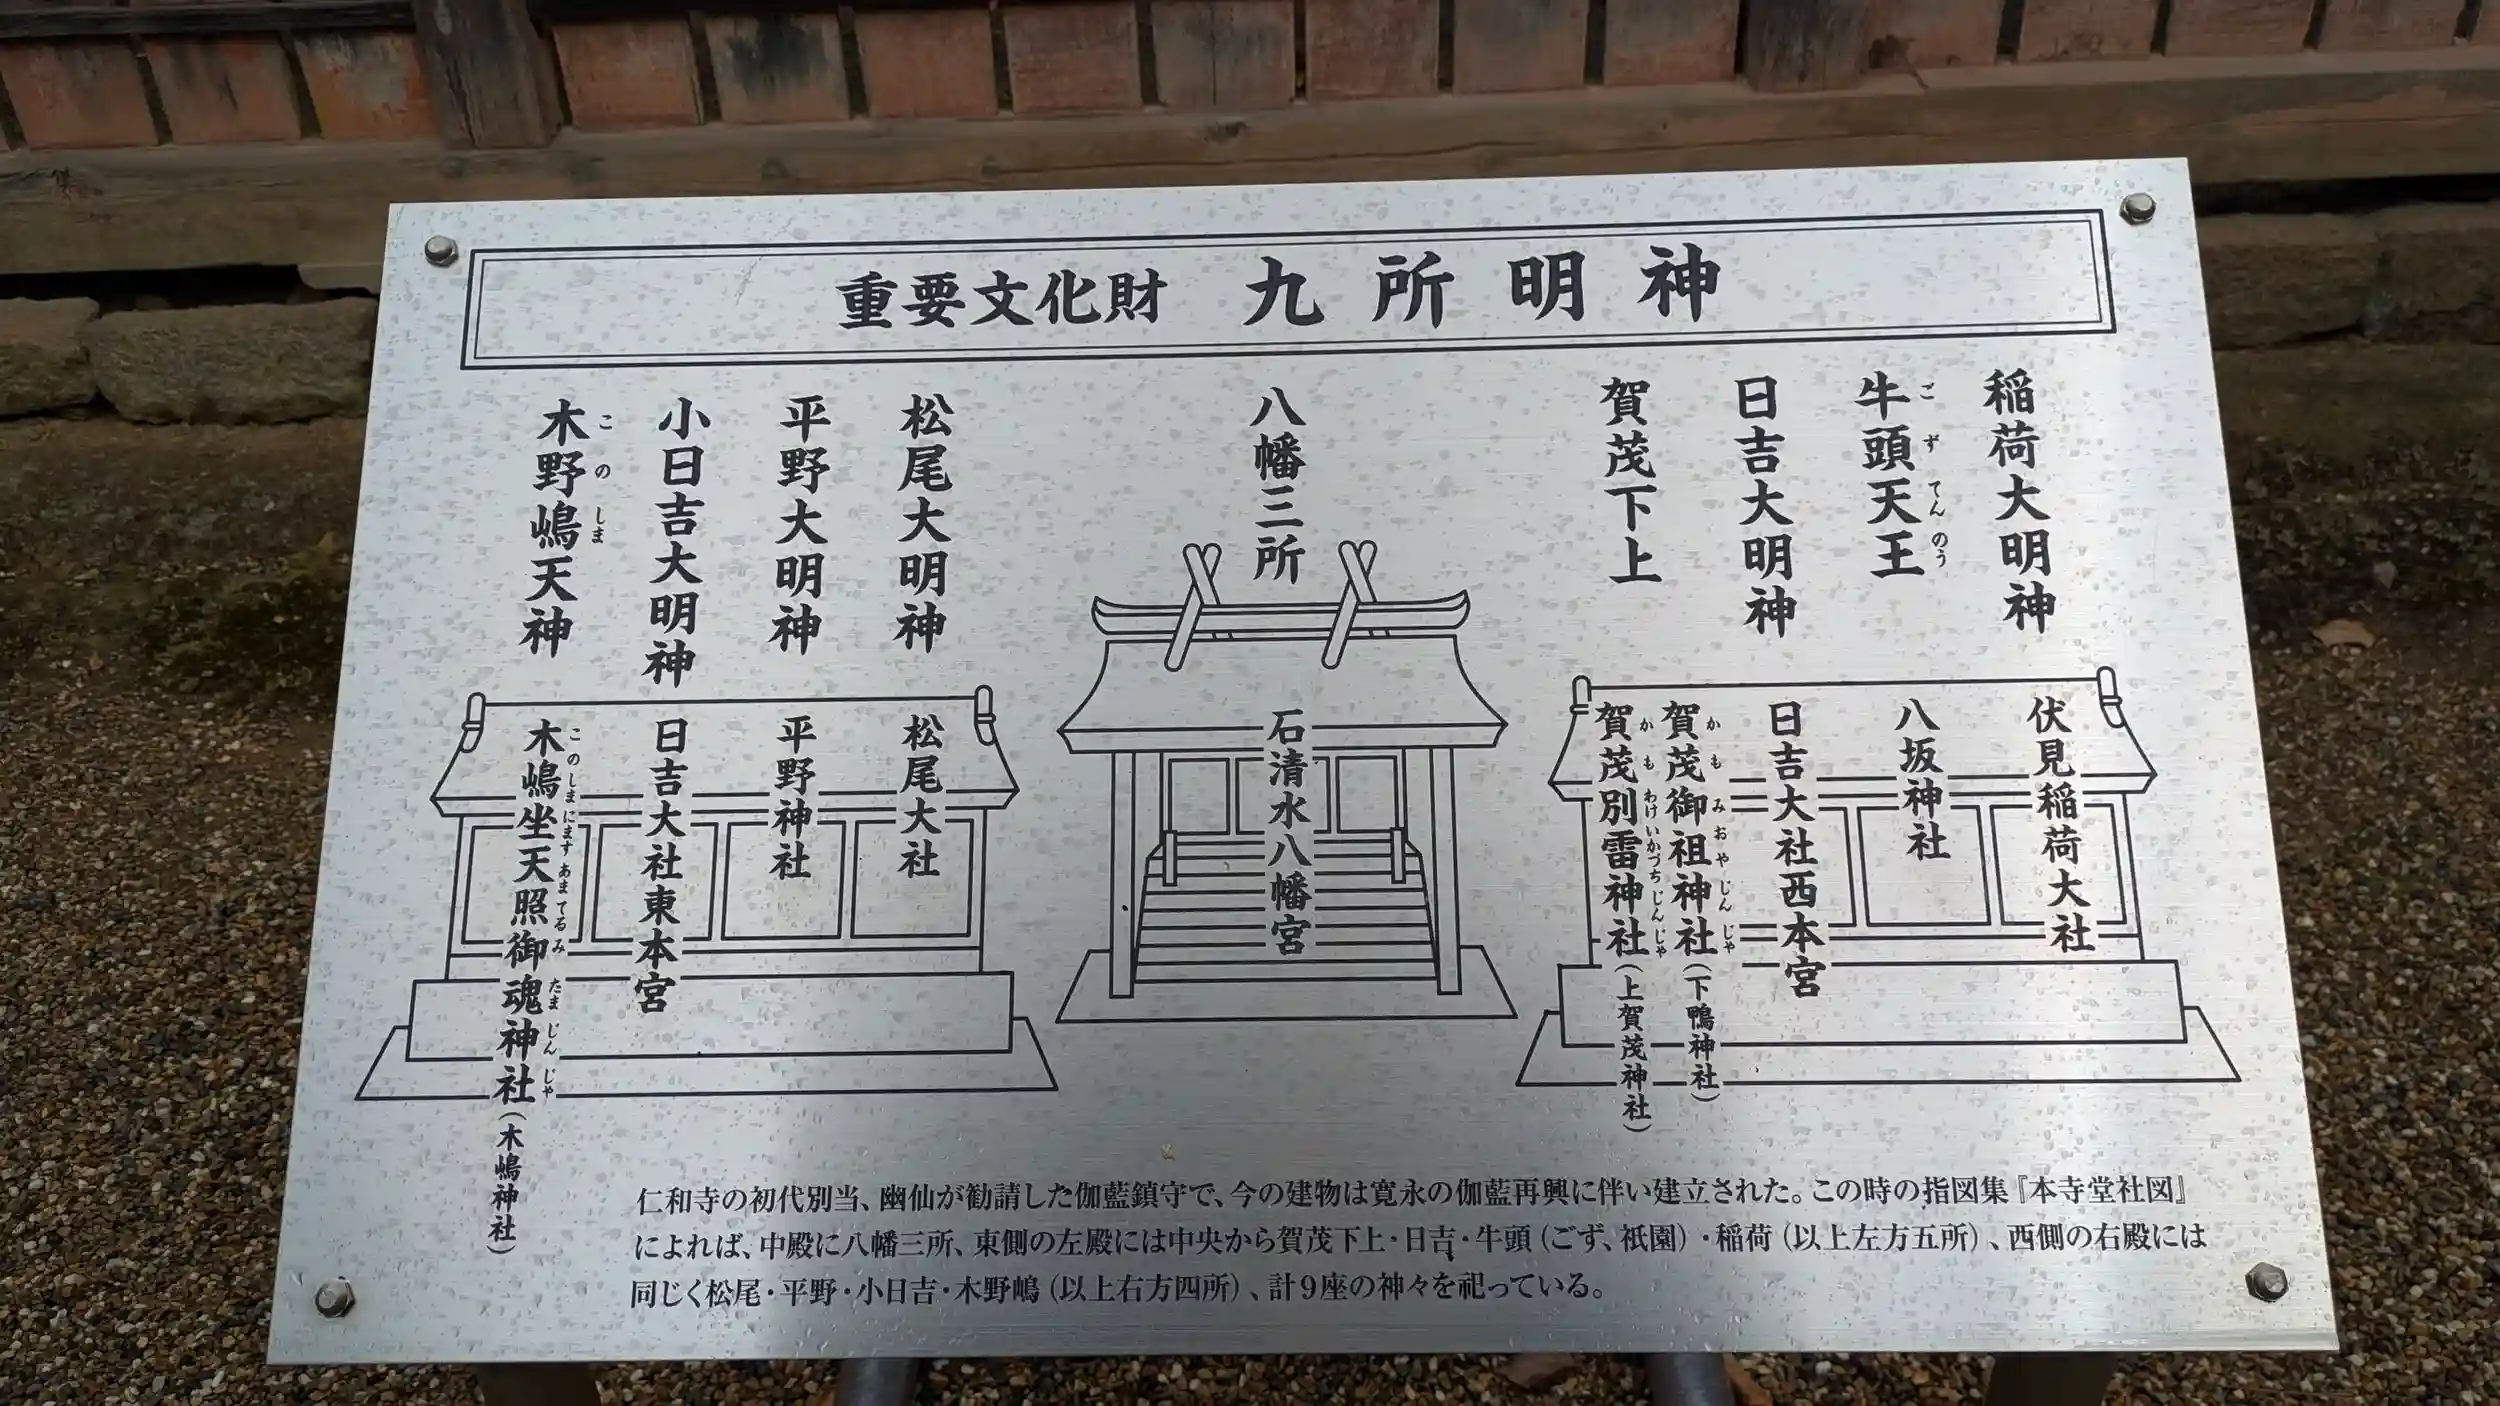 重要文化財 九所明神
稲荷大明神
牛頭天王
ごずてんのう
日吉大明神
賀茂下上
八幡三所
松尾大明神
平野大明神
小日吉大明神
木野嶋天神
このしま
伏見稲荷大社
八坂神社
日吉大社西本宮
賀茂御祖神社(下鴨神社)
かもみおやじんじゃ
賀茂別雷神社(上賀茂神社)
かもわけいかづちじんじゃ
石清水八幡宮
松尾大社
平野神社
日吉大社東本宮
木嶋坐天照御魂神社(木嶋神社)
このしまにますあまてるみたまじんじゃ
仁和寺の初代別当、幽仙が勧請した伽藍鎮守で、今の建物は寛永の伽藍再興に伴い建立された。この時の指図集『本寺堂社図』
によれば、中殿に八幡三所、東側の左殿には中央から賀茂下上・日吉・牛頭(ごず、祇園)・稲荷(以上左方五所)、西側の右殿には
同じく松尾・平野・小日吉・木野嶋(以上右方四所)、計9座の神々を祀っている。